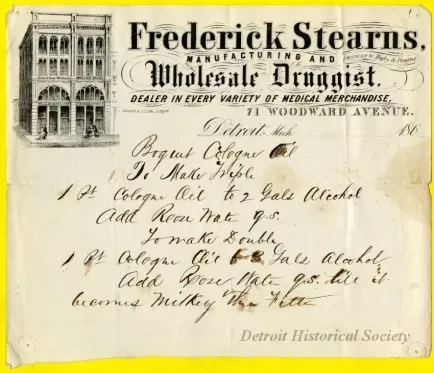 Frederick Stearns,
Successor to Higby & Stearns
MANUFACTURING AND
Wholesale Druggist.
DEALER IN EVERY VARIETY OF MEDICAL MERCHANDISE,
71 WOODWARD AVENUE.
Detroit, Mich. 186
Cologne Oil
To Make Triple
1 Pt Cologne Oil to 2 Gals Alcohol
Add Rose Water q.s.
To make Double
1 Pt Cologne Oil to 3 Gals Alcohol
Add Rose Water q.s. till it
becomes Milkey then Filter
Detroit Historical Society